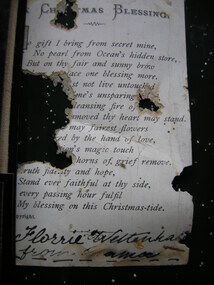 CHRISTMAS BLESSING.
gift I bring from secret mine,
No pearl from Ocean's hidden store,
But on thy fair and sunny brow
ace one blessing more.
t not live untouch
me's unsparing
leansing fire of
moved thy heart may stand.
may fairest flowers
ed by the hand of love,
n's magic touch
horns of grief remove.
ruth and hope,
Stand ever faithful at thy side,
every passing hour fulfil
My blessing on this Christmas-tide.
Florrie
from